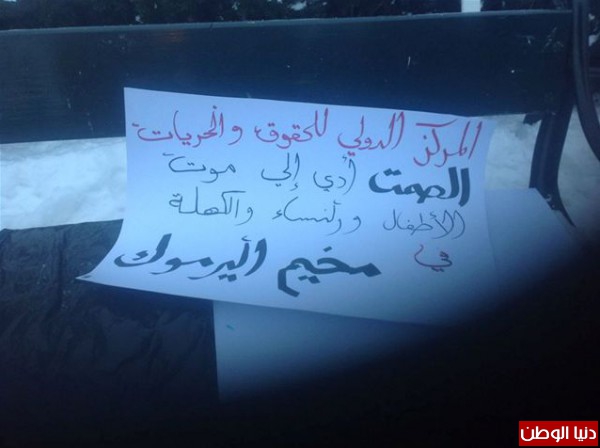 المركز الدولي للحقوق والحريات
الصمت أدي إلي موت
الأطفال ورلنساء والكهلة
في مخيم أليرموك
دنيا الوطن